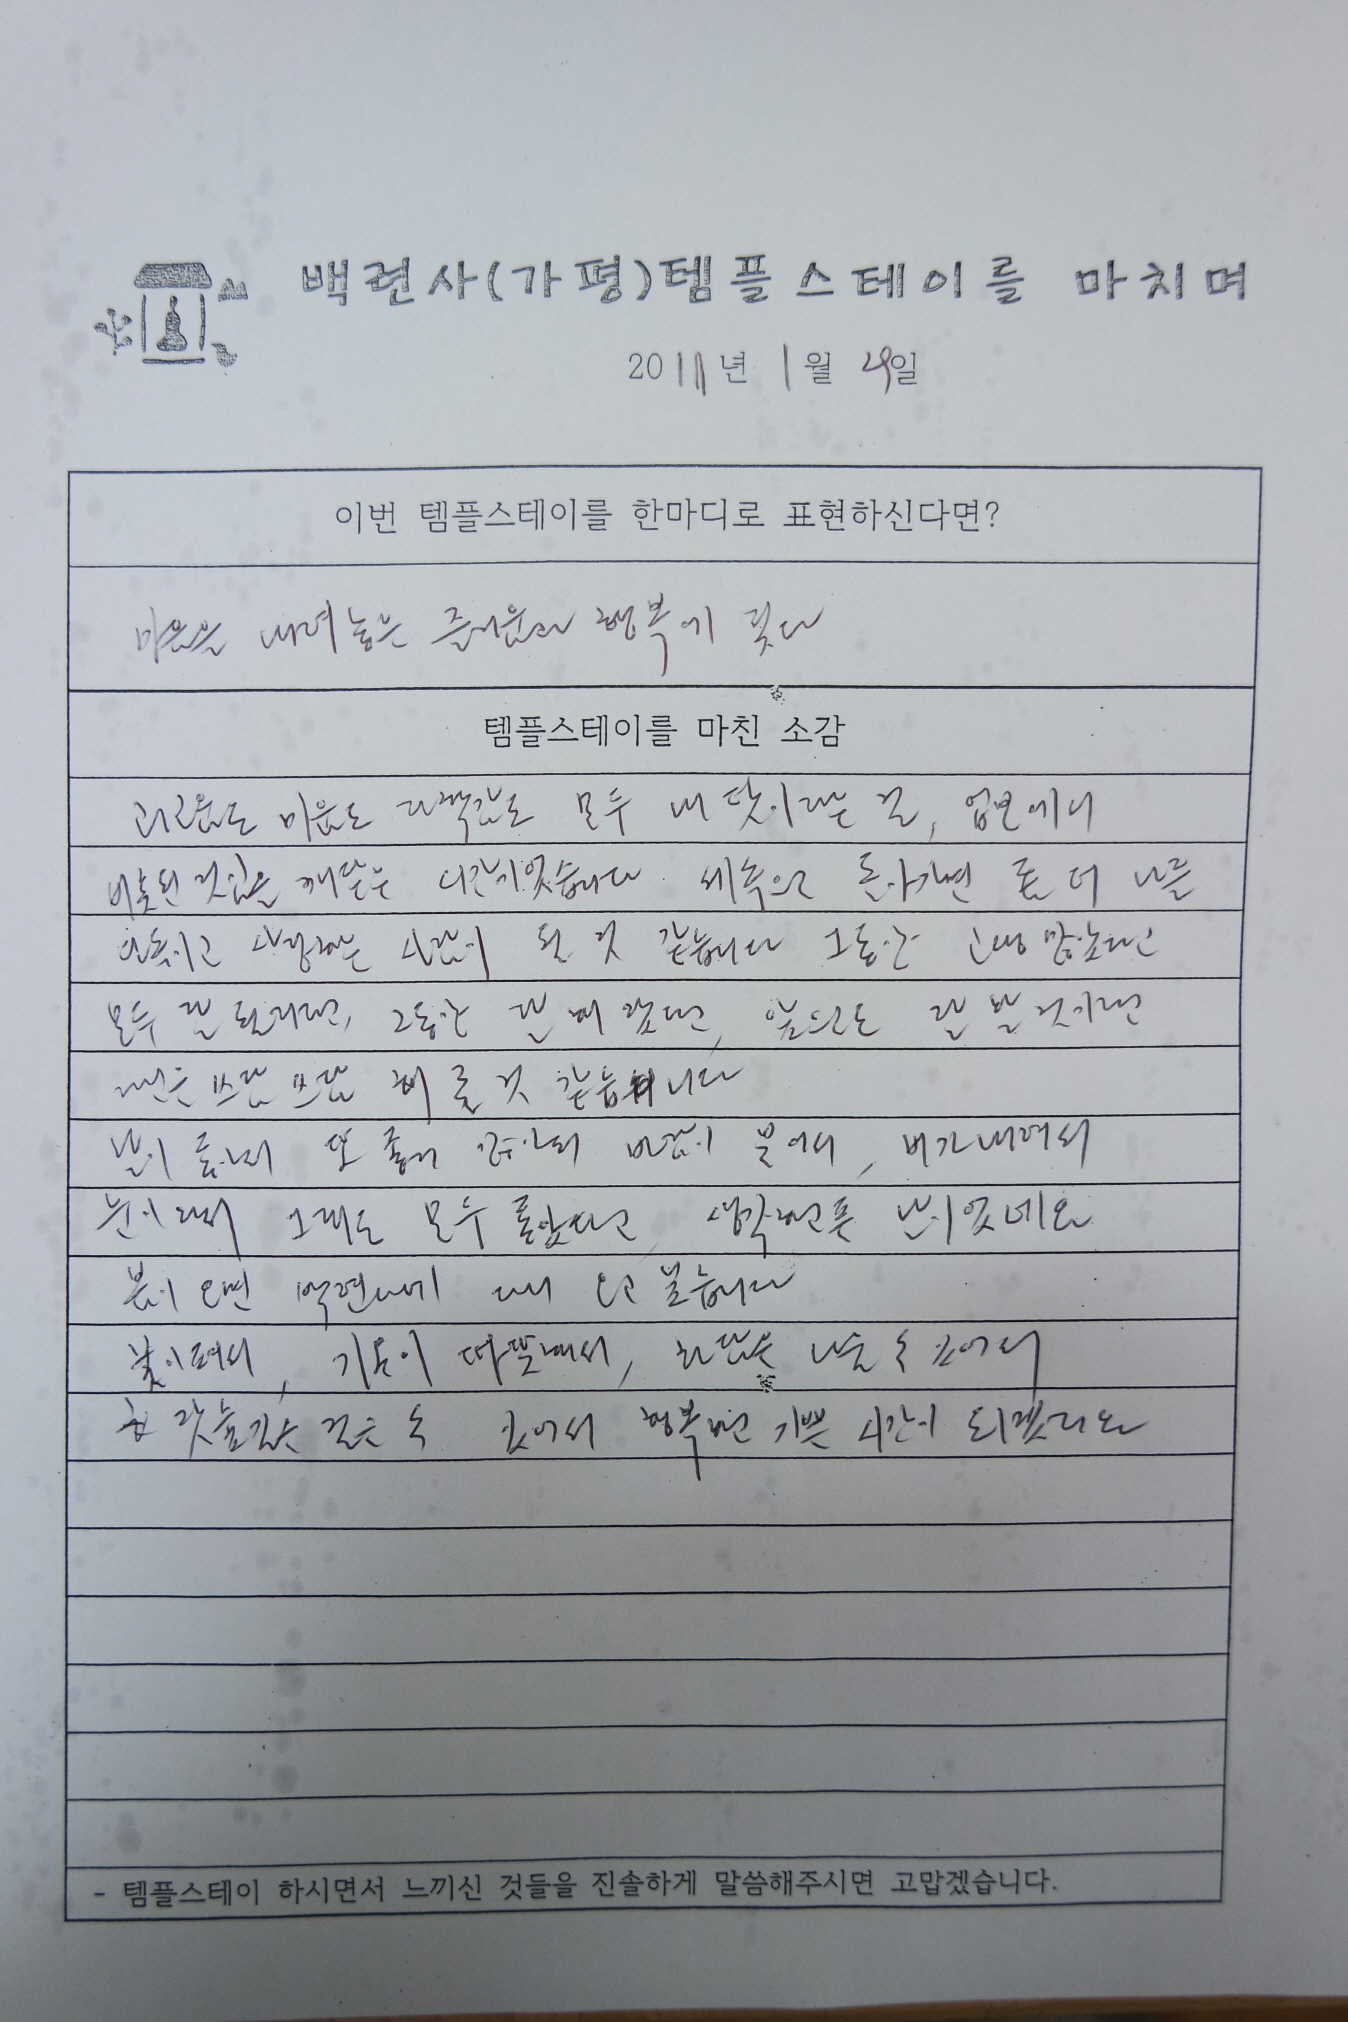 백련사(가평)템플스테이를 마치며
2011년 1월 4일
이번 템플스테이를 한마디로 표현하신다면?
마음을 내려놓은 즐거움과 행복에 젖다
템플스테이를 마친 소감
괴로움도 미움도 모두 내 탓이라는 걸,
비롯된 것임을 깨달은 시간이었습니다 세속으로 돌아가면 좀 더 나를
다독이고 사랑하는 사람이 될 것 같습니다 그동안 고생 많았다고
모두 잘 될거라고, 그동안 잘 해 왔다고, 앞으로도 잘 할 것이라고
쓰담 쓰담 해 줄 것 같습니다
날이 좋아서 또 좋지 않아서 바람이 불어서, 비가 내려서
눈이 와서 그래도 모두 좋았다고, 생각한 날이었네요
봄이 오면 백련사에 다시 오고 싶습니다
꽃이 펴서, 기온이 따뜻해서, 나눌 수 있어서
걸을 수 있어서 행복한 기쁜 시간이 되겠지요
- 템플스테이 하시면서 느끼신 것들을 진솔하게 말씀해주시면 고맙겠습니다.